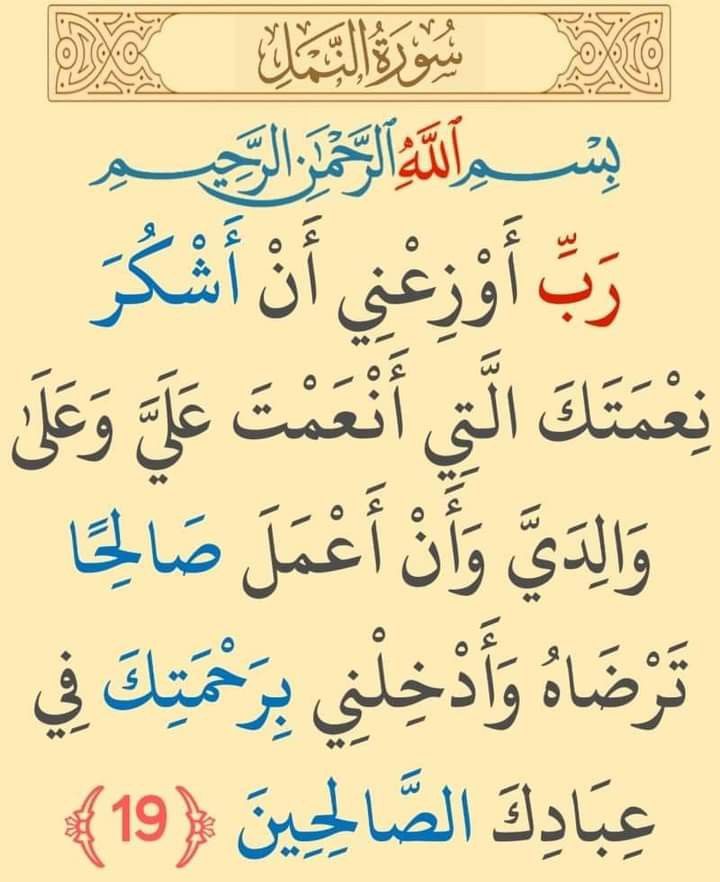 سُورَةُ النَّمْلِ
بِسْمِ ٱللَّهِ ٱلرَّحْمَٰنِ ٱلرَّحِيمِ
رَبِّ أَوْزِعْنِي أَنْ أَشْكُرَ
نِعْمَتَكَ الَّتِي أَنْعَمْتَ عَلَيَّ وَعَلَىٰ
وَالِدَيَّ وَأَنْ أَعْمَلَ صَالِحًا
تَرْضَاهُ وَأَدْخِلْنِي بِرَحْمَتِكَ فِي
عِبَادِكَ الصَّالِحِينَ ﴿19﴾